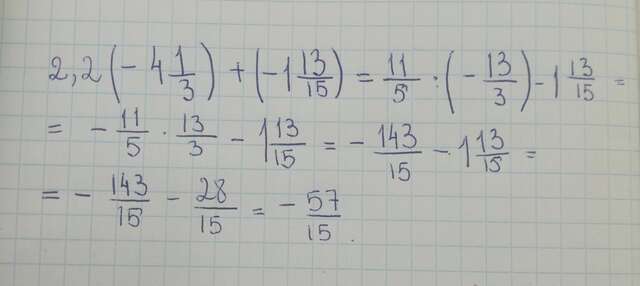 2,2(-4 1/3) + (-1 13/15) = 11/5 : (-13/3) - 1 13/15 =
= - 11/5 · 13/3 - 1 13/15 = - 143/15 - 1 13/15 =
= - 143/15 - 28/15 = - 57/15.